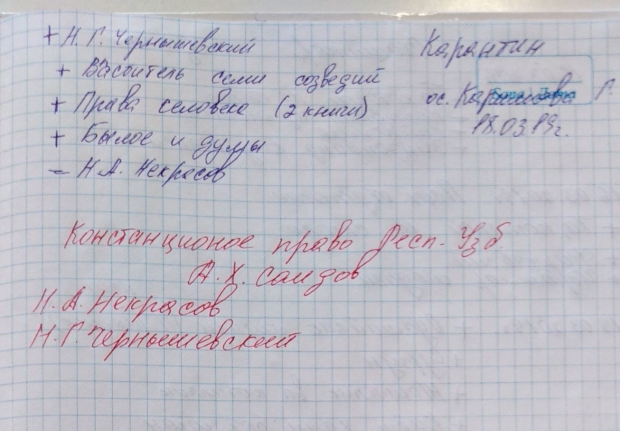 + Н. Г. Чернышевский
+ Васбитель семи созведий
+ Права человека (2 книги)
+ Былое и думы
- Н. А. Некрасов
Карантин
ос. Каримова Г.
18.03.19г.
Констанционое право Респ. Узб
А. Х. Саидов
Н. А. Некрасов
Н. Г. Чернышевский